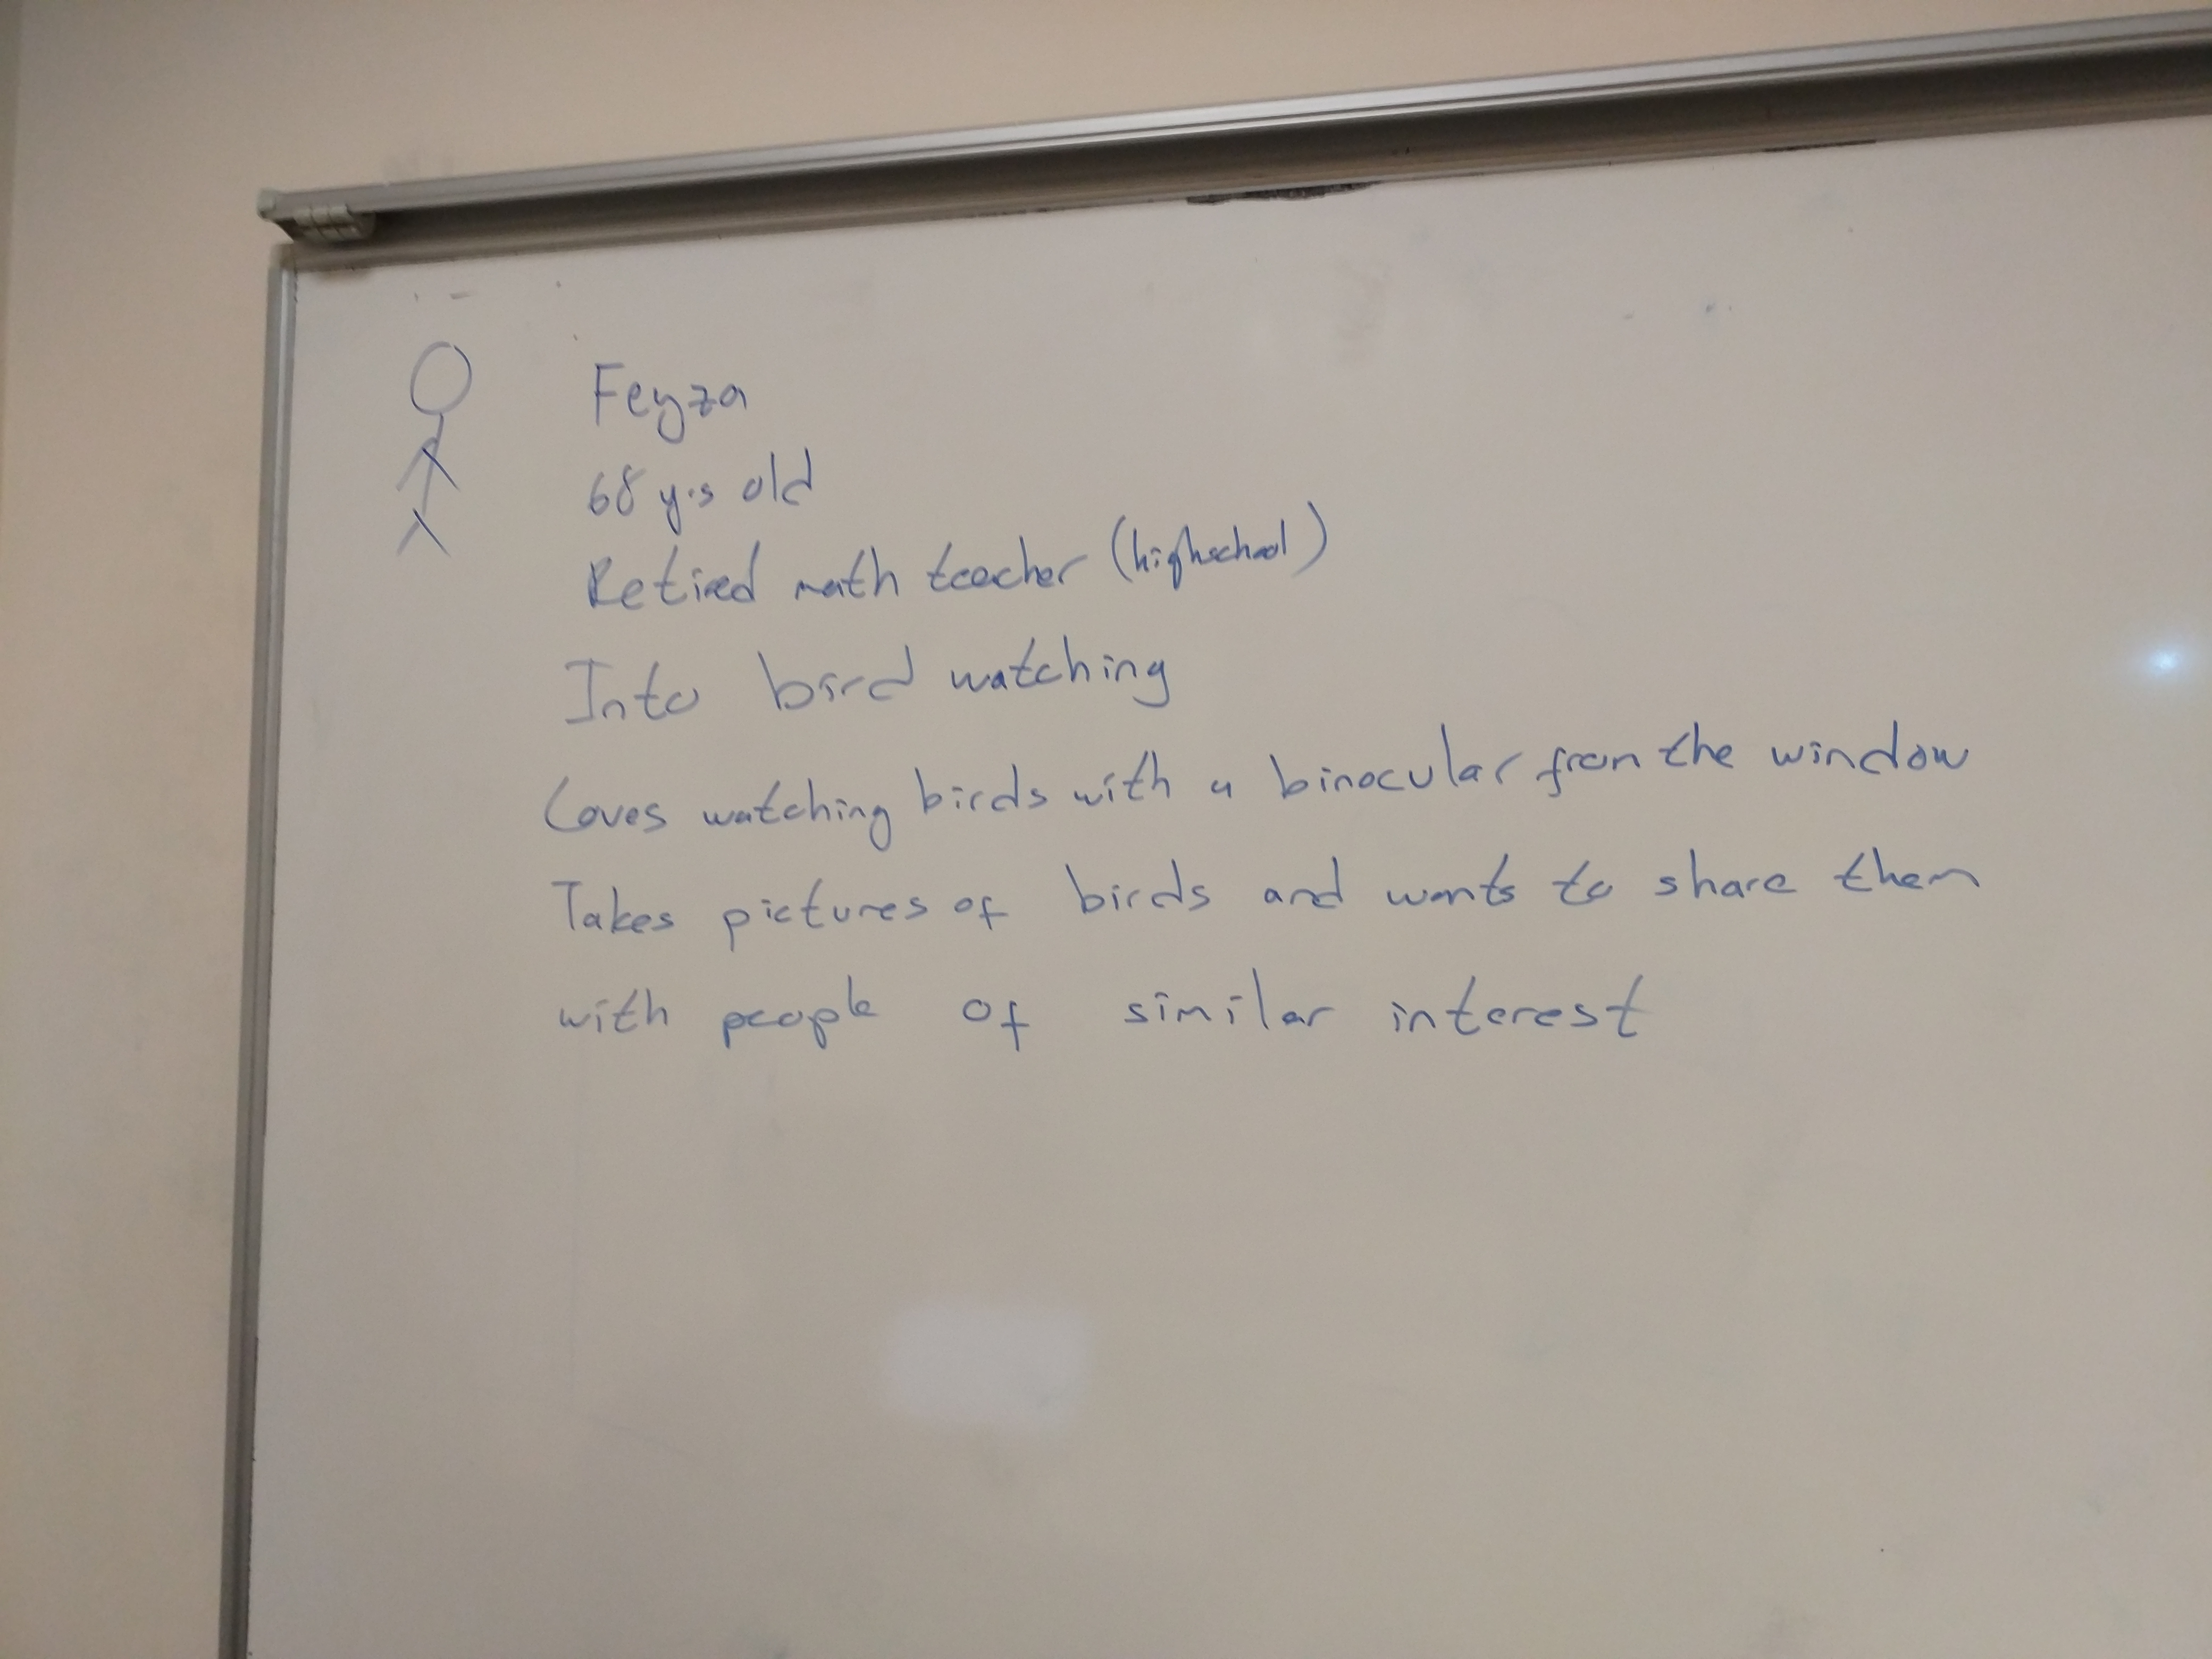 Feyza
68 y.s old
Retired math teacher (highschool)
Into bird watching
Loves watching birds with a binocular from the window
Takes pictures of birds and wants to share them
with people of similar interest